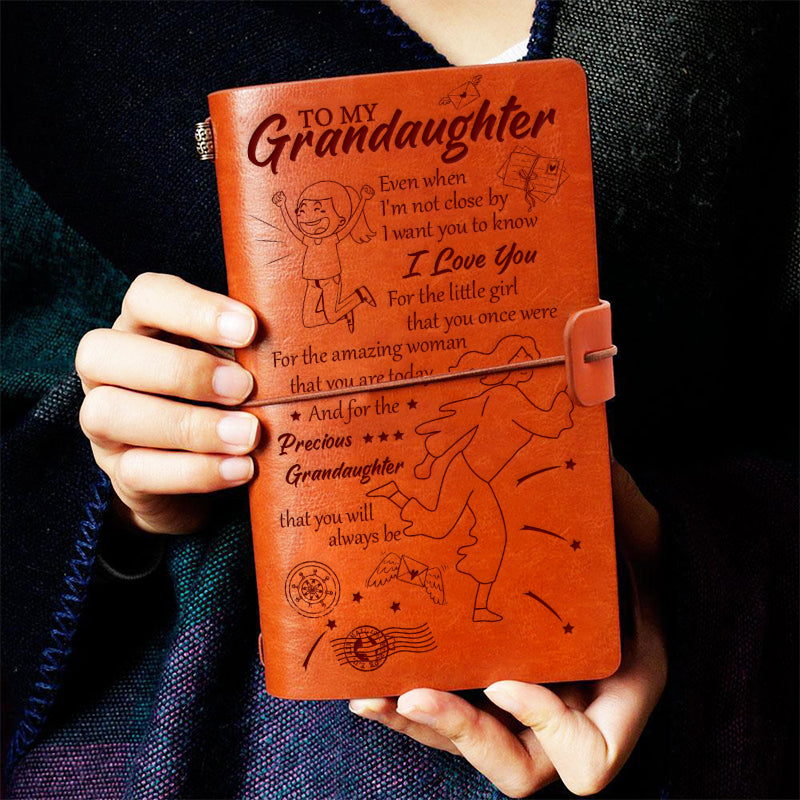 TO MY
Grandaughter
Even when
I'm not close by
I want you to know
I Love You
For the little girl
that you once were
For the amazing woman
that you are today
And for the
Precious
Grandaughter
that you will
always be